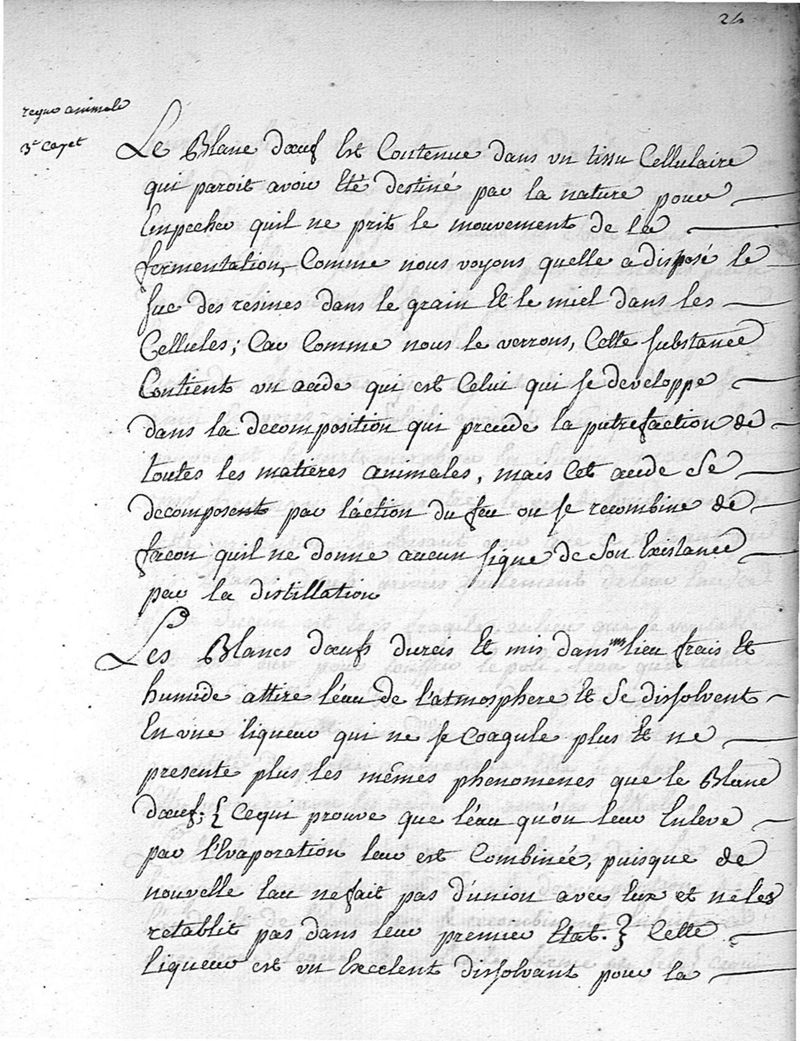 24
regne animale
3e Cayet
Le Blanc d'œuf Est Contenue dans un tissu Cellulaire
qui paroit avoir Eté destiné par la nature pour
Empecher quil ne prit le mouvement de la
fermentation, Comme nous voyons quelle a disposé le
suc des resines dans le grain Et le miel dans les
Cellules; Car Comme nous le verrons, Cette substance
Contient un acide qui est Celui qui se developpe
dans la decomposition qui precede la putrefaction de
toutes les matières animales, mais Cet acide Se
decomposent par l'action du feu ou se recombine de
facon quil ne donne aucun signe de Son Existance
par la distillation
Les Blancs d'œufs durcis Et mis dans un lieu frais Et
humide attire l'éau de l'atmosphere Et Se dissolvent
En une liqueur qui ne se Coagule plus Et ne
presente plus les mêmes phenomenes que le Blanc
d'œuf; { Cequi prouve que l'éau qu'on leur Enleve
par l'Evaporation leur est Combinée, puisque de
nouvelle Eau ne fait pas d'union avec Eux et ne les
retablit pas dans leur premier Etat. } Cette
liqueur est un Excelent dissolvant pour la